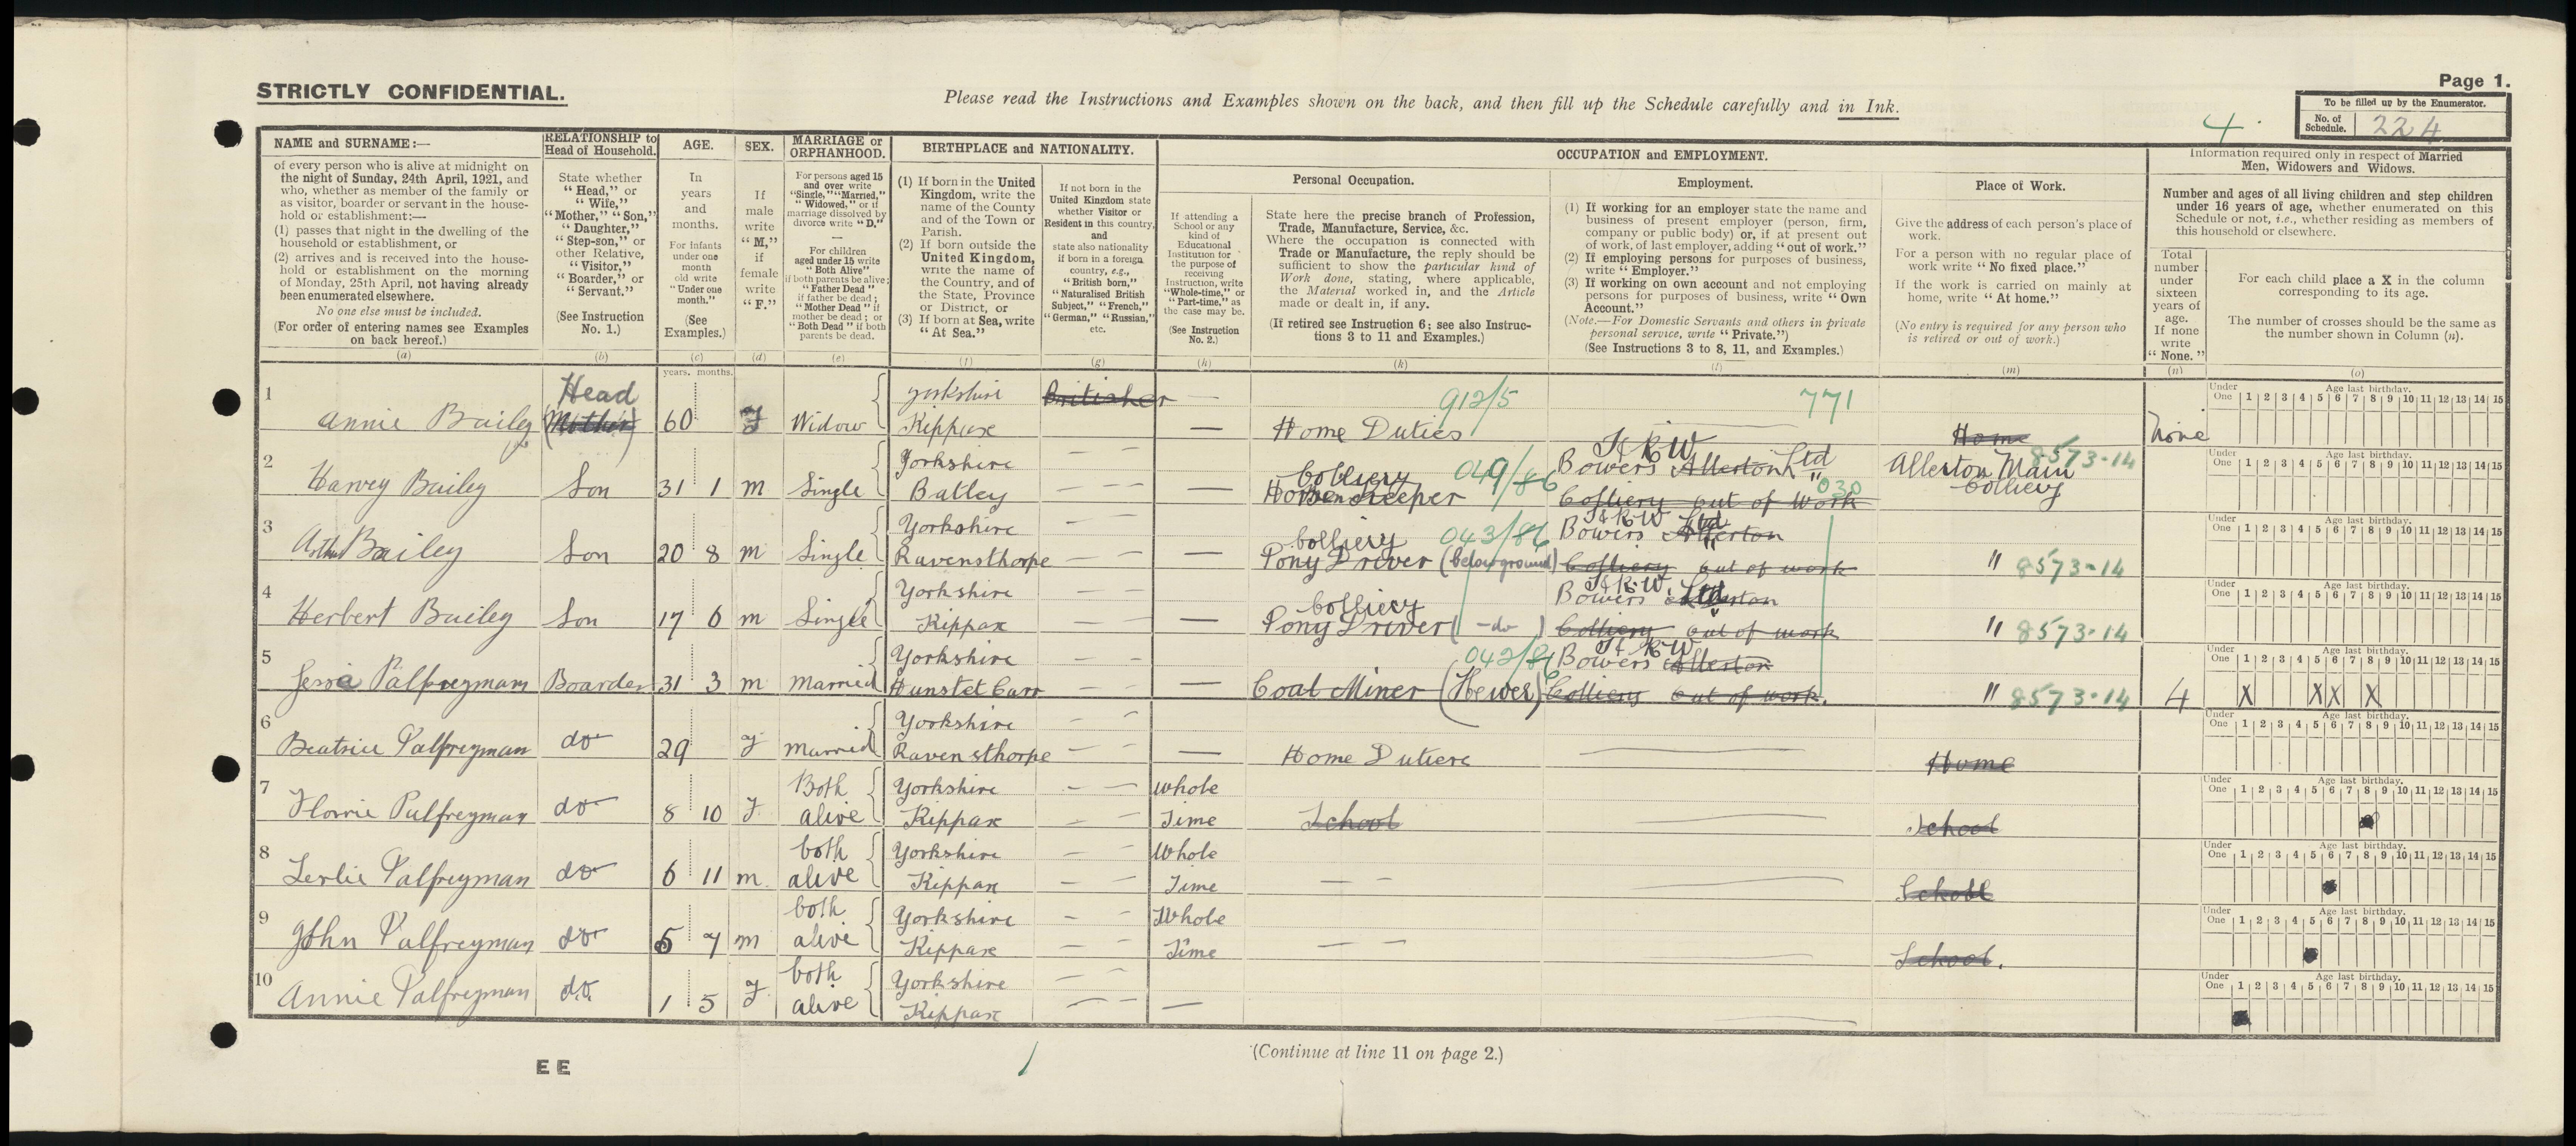 STRICTLY CONFIDENTIAL.
Please read the Instructions and Examples shown on the back, and then fill up the Schedule carefully and in Ink.
Page 1.
To be filled up by the Enumerator.
No. of Schedule. 224
4
NAME and SURNAME:—
of every person who is alive at midnight on
the night of Sunday, 24th April, 1921, and
who, whether as member of the family or
as visitor, boarder or servant in the house-
hold or establishment:—
(1) passes that night in the dwelling of the
household or establishment, or
(2) arrives and is received into the house-
hold or establishment on the morning
of Monday, 25th April, not having already
been enumerated elsewhere.
No one else must be included.
(For order of entering names see Examples
on back hereof.)
(a)
RELATIONSHIP to
Head of Household.
State whether
"Head," or
"Wife,"
"Mother," "Son,"
"Daughter,"
"Step-son," or
other Relative,
"Visitor,"
"Boarder," or
"Servant."
(See Instruction
No. 1.)
(b)
AGE.
In
years
and
months.
For infants
under one
month
old write
"Under one
month."
(See
Examples.)
(c)
SEX.
If
male
write
"M,"
if
female
write
"F."
(d)
MARRIAGE or
ORPHANHOOD.
For persons aged 15
and over write
"Single," "Married,"
"Widowed," or if
marriage dissolved by
divorce write "D."
For children
aged under 15 write
"Both Alive"
if both parents be alive;
"Father Dead"
if father be dead;
"Mother Dead" if
mother be dead; or
"Both Dead" if both
parents be dead.
(e)
BIRTHPLACE and NATIONALITY.
(1) If born in the United
Kingdom, write the
name of the County
and of the Town or
Parish.
(2) If born outside the
United Kingdom,
write the name of
the Country, and of
the State, Province
or District, or
(3) If born at Sea, write
"At Sea."
(f)
If not born in the
United Kingdom state
whether Visitor or
Resident in this country,
and
state also nationality
if born in a foreign
country, e.g.,
"British born,"
"Naturalised British
Subject," "French,"
"German," "Russian,"
etc.
(g)
OCCUPATION and EMPLOYMENT.
If attending a
School or any
kind of
Educational
Institution for
the purpose of
receiving
Instruction, write
"Whole-time," or
"Part-time," as
the case may be.
(See Instruction
No. 2.)
(h)
Personal Occupation.
State here the precise branch of Profession,
Trade, Manufacture, Service, &c.
Where the occupation is connected with
Trade or Manufacture, the reply should be
sufficient to show the particular kind of
Work done, stating, where applicable,
the Material worked in, and the Article
made or dealt in, if any.
(If retired see Instruction 6; see also Instruc-
tions 3 to 11 and Examples.)
(k)
Employment.
(1) If working for an employer state the name and
business of present employer (person, firm,
company or public body) or, if at present out
of work, of last employer, adding "out of work."
(2) If employing persons for purposes of business,
write "Employer."
(3) If working on own account and not employing
persons for purposes of business, write "Own
Account."
(Note.—For Domestic Servants and others in private
personal service, write "Private.")
(See Instructions 3 to 8, 11, and Examples.)
(l)
Place of Work.
Give the address of each person's place of
work.
For a person with no regular place of
work write "No fixed place."
If the work is carried on mainly at
home, write "At home."
(No entry is required for any person who
is retired or out of work.)
(m)
Information required only in respect of Married
Men, Widowers and Widows.
Number and ages of all living children and step children
under 16 years of age, whether enumerated on this
Schedule or not, i.e., whether residing as members of
this household or elsewhere.
Total
number
under
sixteen
years of
age.
If none
write
"None."
(n)
For each child place a X in the column
corresponding to its age.
The number of crosses should be the same as
the number shown in Column (n).
(o)
years. months.
Under One Age last birthday. 1 2 3 4 5 6 7 8 9 10 11 12 13 14 15
1 Annie Bailey Head (Mother) 60 F Widow Yorkshire Kippax Britisher — — Home Duties 912/5 771 Home None
Under One Age last birthday. 1 2 3 4 5 6 7 8 9 10 11 12 13 14 15
2 Harvey Bailey Son 31 1 M Single Yorkshire Batley — Colliery Horse Keeper 049/86 T & R W Bowers Allerton Ltd Colliery out of work 030 Allerton Main Colliery 8573-14
Under One Age last birthday. 1 2 3 4 5 6 7 8 9 10 11 12 13 14 15
3 Arthur Bailey Son 20 8 M Single Yorkshire Ravensthorpe — Colliery Pony Driver (below ground) 043/86 T & R W Bowers Allerton Ltd Colliery out of work " 8573-14
Under One Age last birthday. 1 2 3 4 5 6 7 8 9 10 11 12 13 14 15
4 Herbert Bailey Son 17 6 M Single Yorkshire Kippax — Colliery Pony Driver ( -do- ) T & R W Bowers Allerton Ltd Colliery out of work " 8573-14
Under One Age last birthday. 1 2 3 4 5 6 7 8 9 10 11 12 13 14 15
5 Palfreyman Boarder 31 3 M Married Yorkshire Hunslet Carr — Coal Miner (Hewer) 042/86 T & R W Bowers Allerton Colliery out of work. " 8573-14 4 X X X X
Under One Age last birthday. 1 2 3 4 5 6 7 8 9 10 11 12 13 14 15
6 Beatrice Palfreyman do 29 F Married Yorkshire Ravensthorpe — Home Duties Home
Under One Age last birthday. 1 2 3 4 5 6 7 8 9 10 11 12 13 14 15
7 Florrie Palfreyman do 8 10 F Both alive Yorkshire Kippax Whole Time School School
Under One Age last birthday. 1 2 3 4 5 6 7 8 9 10 11 12 13 14 15
8 Leslie Palfreyman do 6 11 M both alive Yorkshire Kippax Whole Time — — School
Under One Age last birthday. 1 2 3 4 5 6 7 8 9 10 11 12 13 14 15
9 John Palfreyman do 5 7 M both alive Yorkshire Kippax Whole Time — — School.
Under One Age last birthday. 1 2 3 4 5 6 7 8 9 10 11 12 13 14 15
10 Annie Palfreyman do. 1 5 F both alive Yorkshire Kippax —
(Continue at line 11 on page 2.)
EE